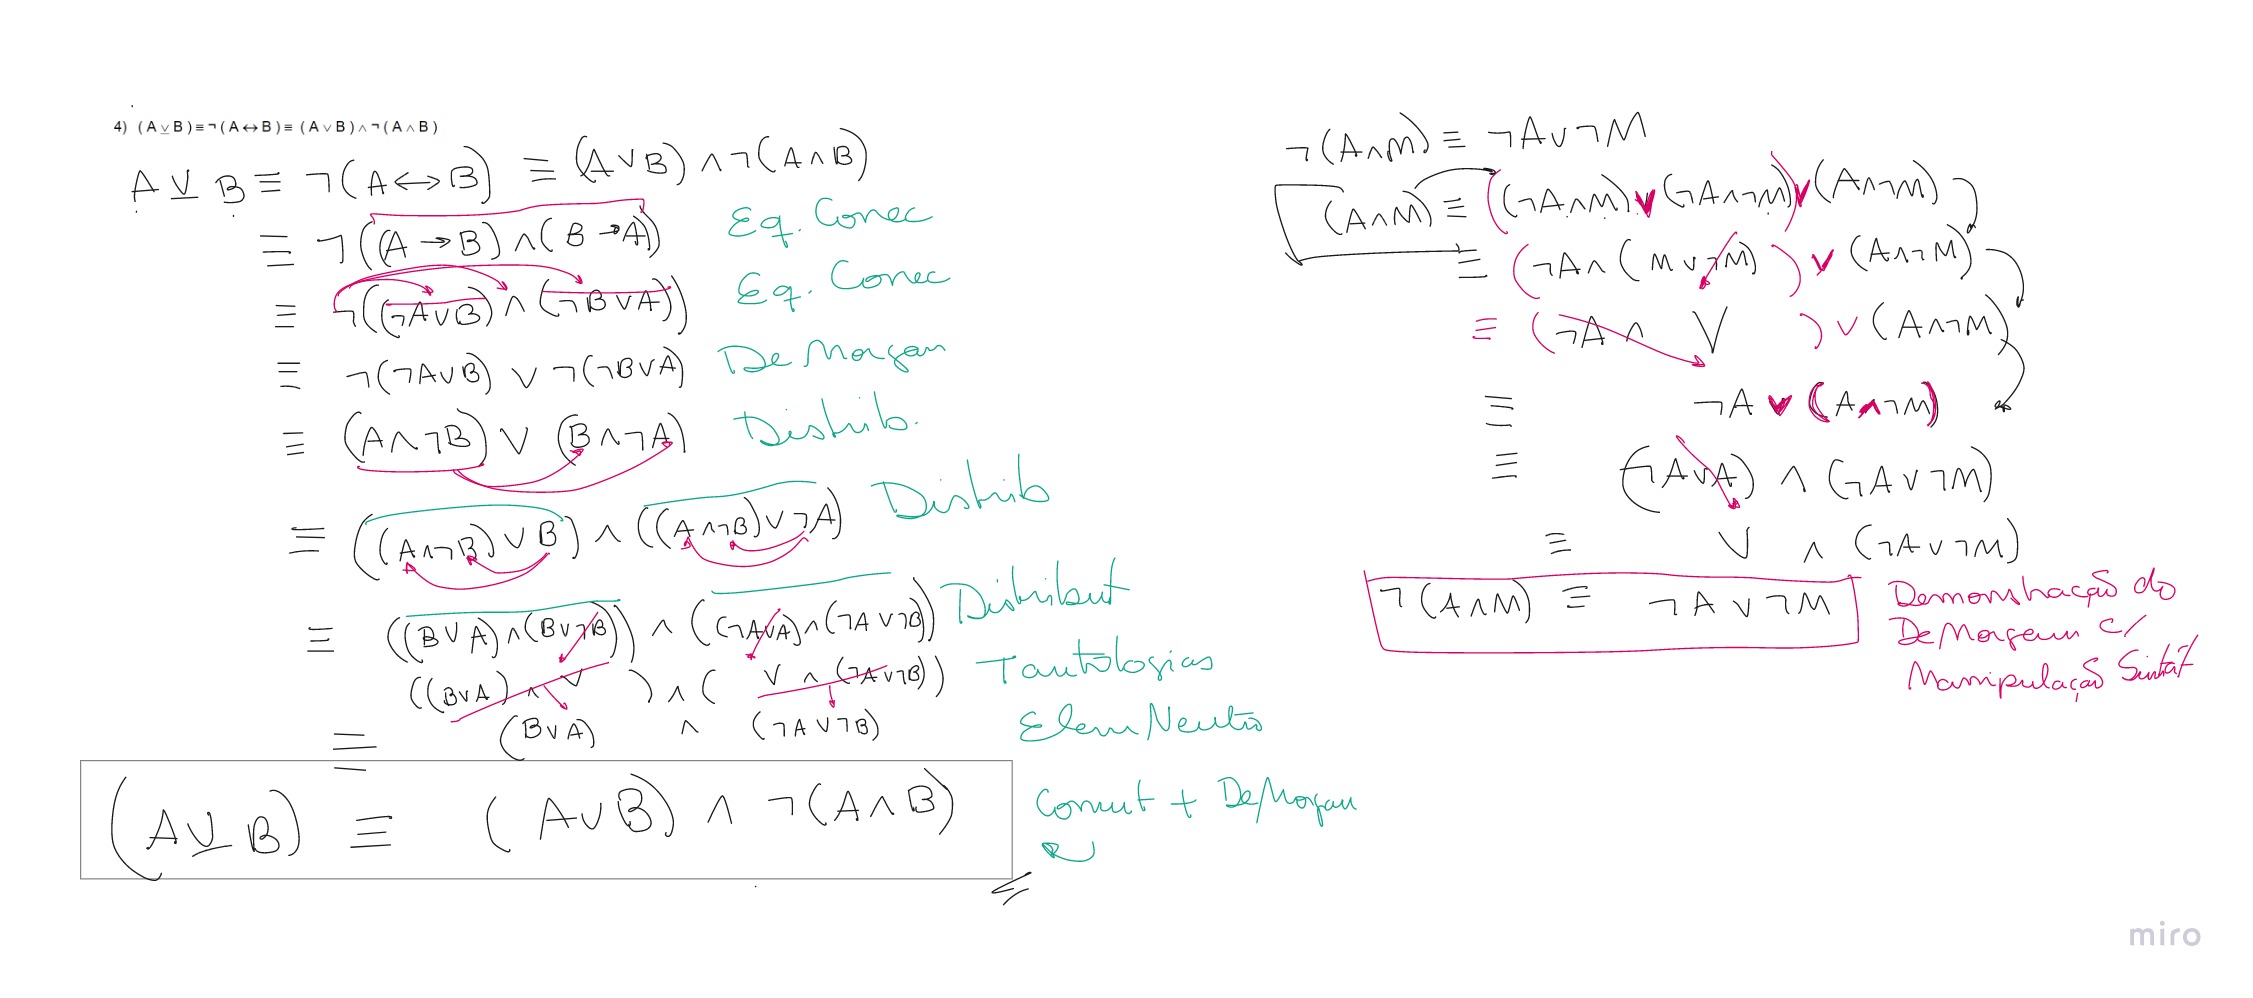 4) ( A ⊻ B ) ≡ ¬ ( A ↔ B ) ≡ ( A ∨ B ) ∧ ¬ ( A ∧ B )
A ⊻ B ≡ ¬(A ↔ B) ≡ (A ∨ B) ∧ ¬(A ∧ B)
≡ ¬((A → B) ∧ (B → A)) Eq. Conec
≡ ¬((¬A ∨ B) ∧ (¬B ∨ A)) Eq. Conec
≡ ¬(¬A ∨ B) ∨ ¬(¬B ∨ A) De Morgan
≡ (A ∧ ¬B) ∨ (B ∧ ¬A) Distrib.
≡ ((A ∧ ¬B) ∨ B) ∧ ((A ∧ ¬B) ∨ ¬A) Distrib
≡ ((B ∨ A) ∧ (B ∨ ¬B)) ∧ ((¬A ∨ A) ∧ (¬A ∨ ¬B)) Distribut
((B ∨ A) ∧ V ) ∧ ( V ∧ (¬A ∨ ¬B)) Tautologias
≡ (B ∨ A) ∧ (¬A ∨ ¬B) Elem Neutro
(A ⊻ B) ≡ (A ∨ B) ∧ ¬(A ∧ B) Comut + De Morgan
¬(A ∧ M) ≡ ¬A ∨ ¬M
(A ∧ M) ≡ ((¬A ∧ M) ∨ (¬A ∧ ¬M)) ∨ (A ∧ ¬M)
≡ (¬A ∧ (M ∨ ¬M)) ∨ (A ∧ ¬M)
≡ (¬A ∧ V ) ∨ (A ∧ ¬M)
≡ ¬A ∨ (A ∧ ¬M)
≡ (¬A ∨ A) ∧ (¬A ∨ ¬M)
≡ V ∧ (¬A ∨ ¬M)
¬(A ∧ M) ≡ ¬A ∨ ¬M
Demonstração do
De Morgan c/
Manipulação Sintát
miro